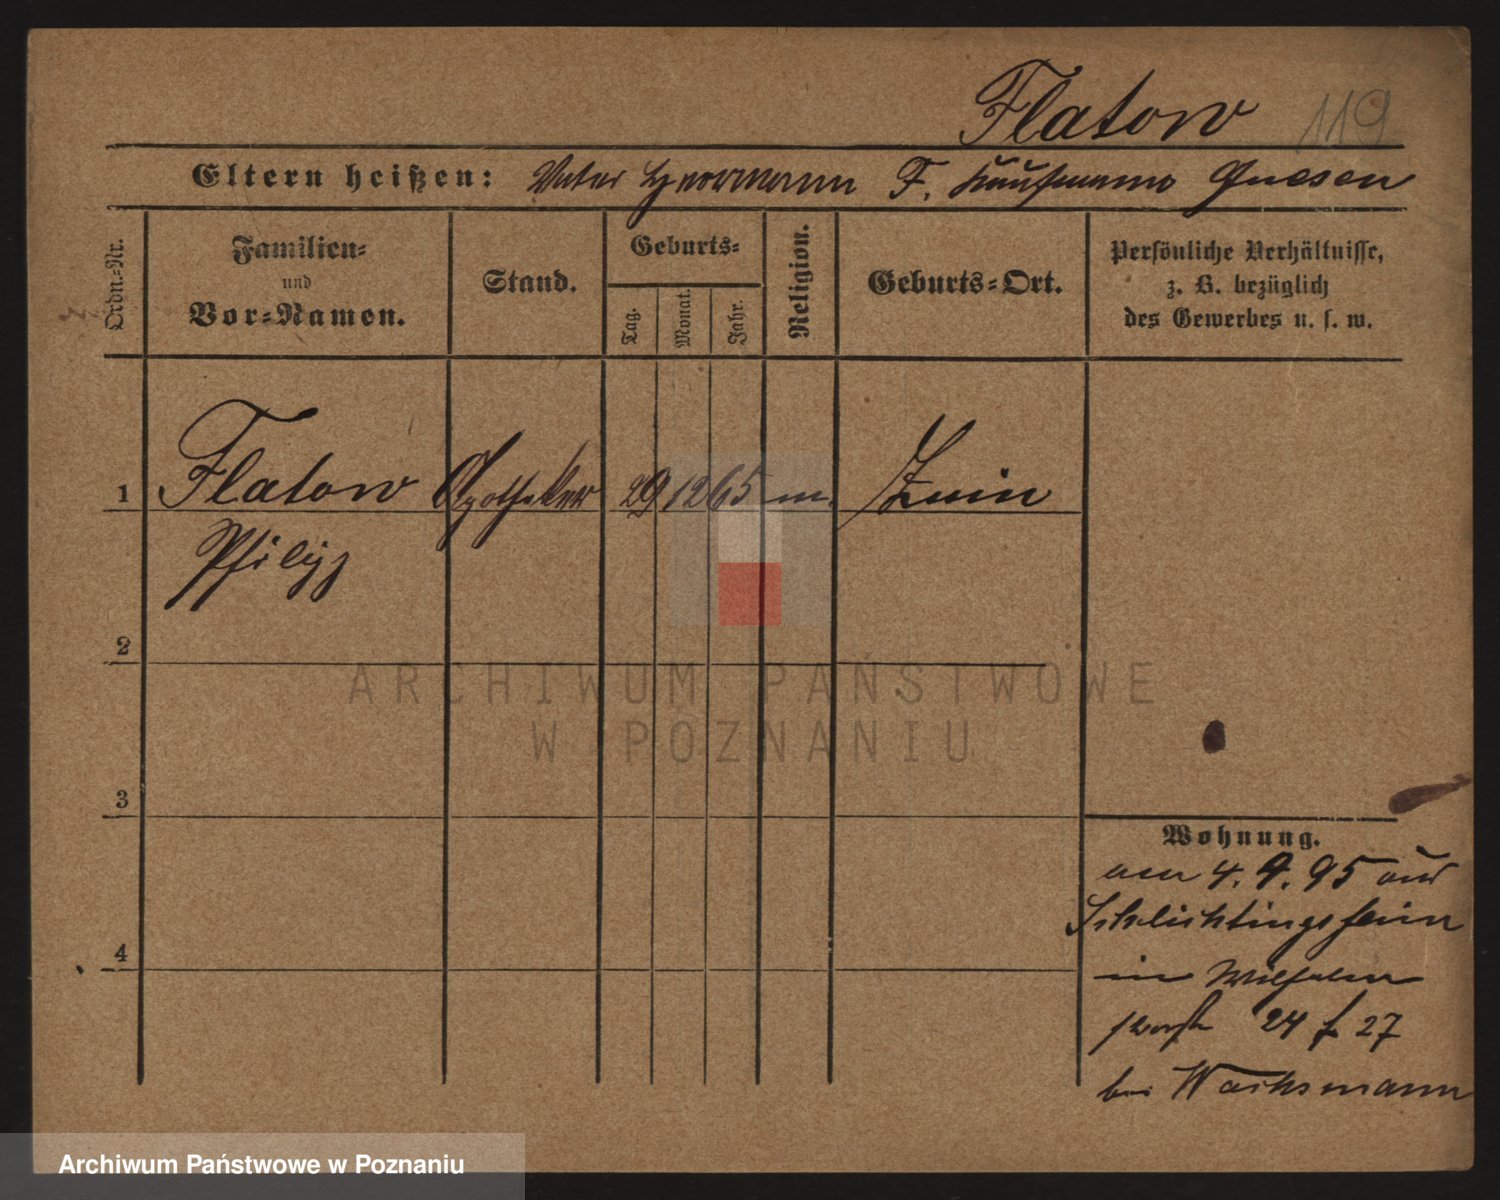 Flatow 119
Eltern heißen: Vater Herrmann F. Kaufmann Gnesen
Ordn.-Nr.
Familien-
und
Vor-Namen.
Stand.
Geburts-
Tag.
Monat.
Jahr.
Religion.
Geburts-Ort.
Persönliche Verhältnisse,
z. B. bezüglich
des Gewerbes u. s. w.
1 Flatow Apotheker 29 12 65 m. Znin
Philipp
2
3
4
Wohnung.
am 4. 9. 95 aus
Schlichtingsheim
in Wilhelm
24 27
bei Wachsmann
ARCHIWUM PAŃSTWOWE
W POZNANIU
Archiwum Państwowe w Poznaniu